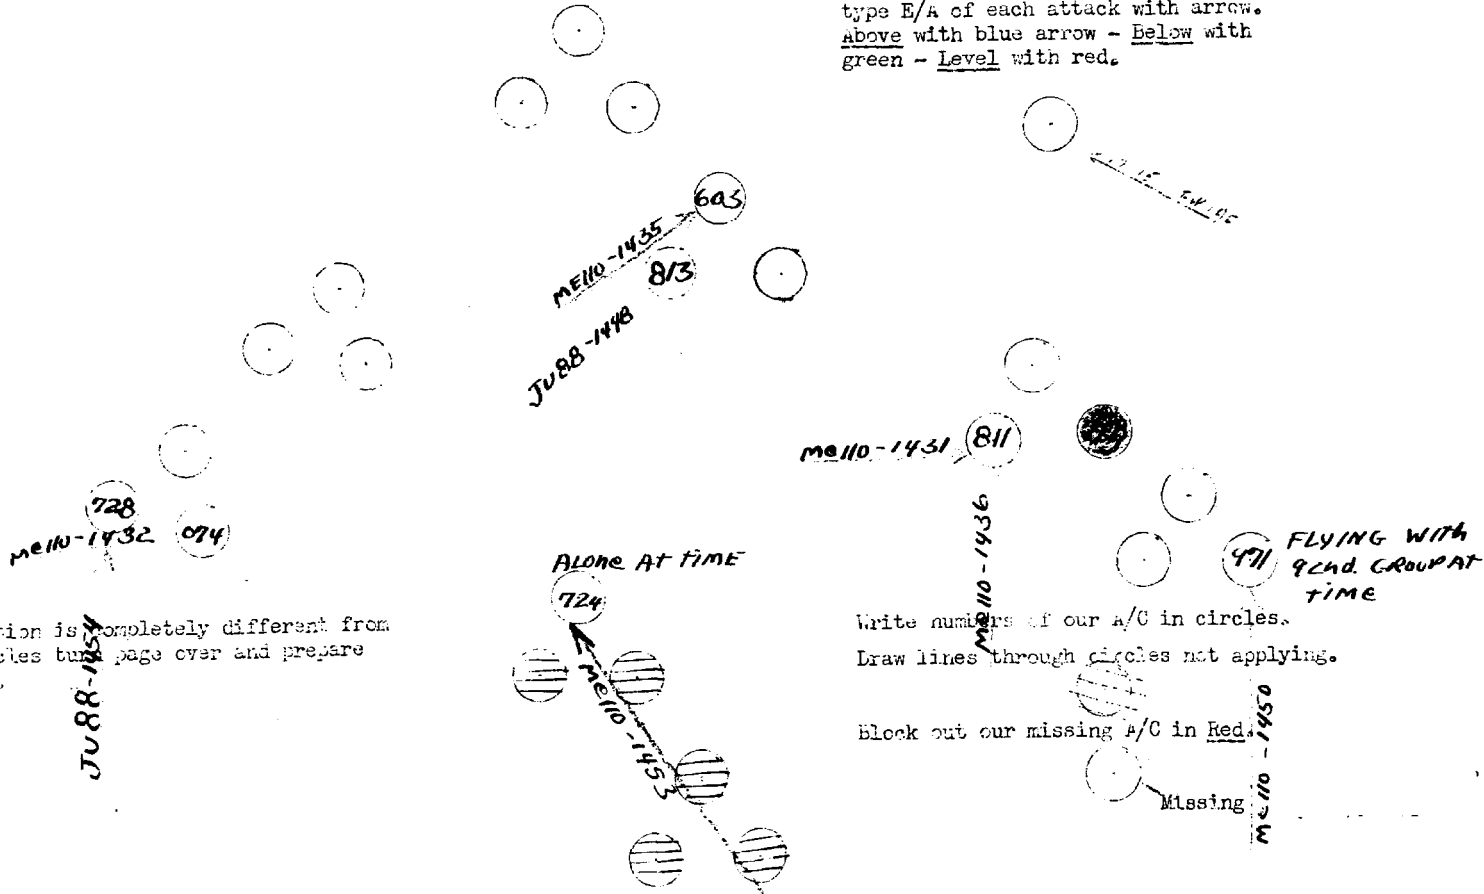 type E/A of each attack with arrow.
Above with blue arrow - Below with
green - Level with red.
603
ME110-1435
813
JU88-1448
Me110-1431
811
728
Me110-1432
074
Me110-1436
471
FLYING With
92nd. GROUP AT
TIME
ALONE At TIME
724
tion is completely different from
cles turn page over and prepare
Write numbers of our A/C in circles.
Draw lines through circles not applying.
JU88-1454
Me110-1453
Block out our missing A/C in Red.
Me110-1450
Missing